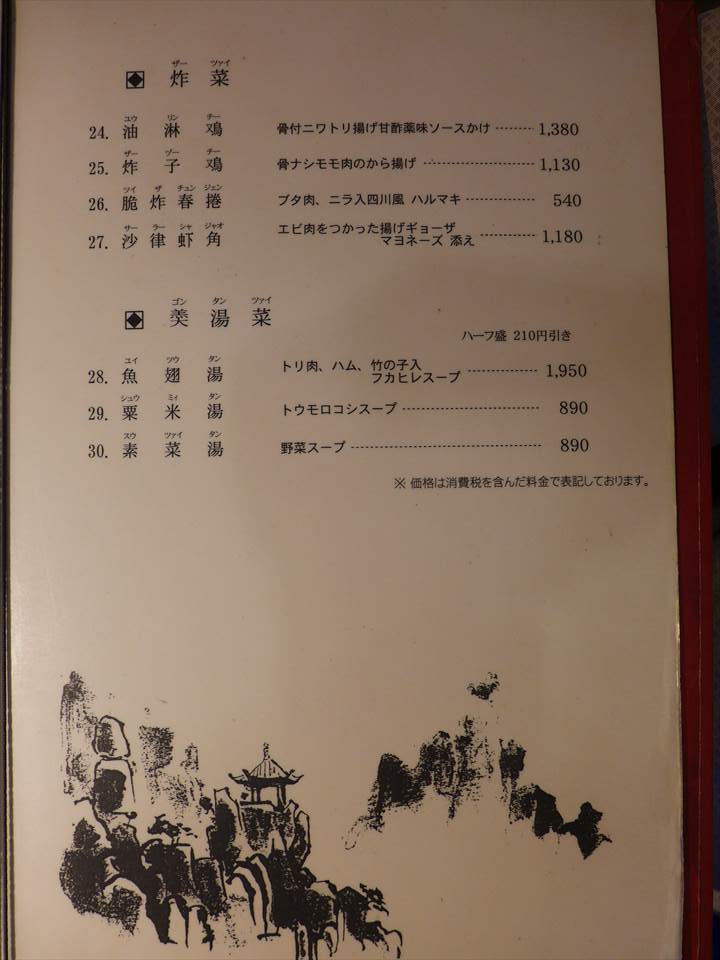 ザー ツァイ
炸菜
ユウ リン チー
24. 油淋鶏 骨付ニワトリ揚げ甘酢薬味ソースかけ -------- 1,380
ザー ヅー チー
25. 炸子鶏 骨ナシモモ肉のから揚げ -------- 1,130
ツイ ザ チュン ジェン
26. 脆炸春捲 ブタ肉、ニラ入四川風 ハルマキ -------- 540
サー ラー シャ ジャオ
27. 沙律虾角 エビ肉をつかった揚げギョーザ
マヨネーズ 添え -------- 1,180
ゴン タン ツァイ
羮湯菜
ハーフ盛 210円引き
ユイ ツウ タン
28. 魚翅湯 トリ肉、ハム、竹の子入
フカヒレスープ -------- 1,950
シュウ ミィ タン
29. 粟米湯 トウモロコシスープ -------- 890
スウ ツァイ タン
30. 素菜湯 野菜スープ -------- 890
※ 価格は消費税を含んだ料金で表記しております。